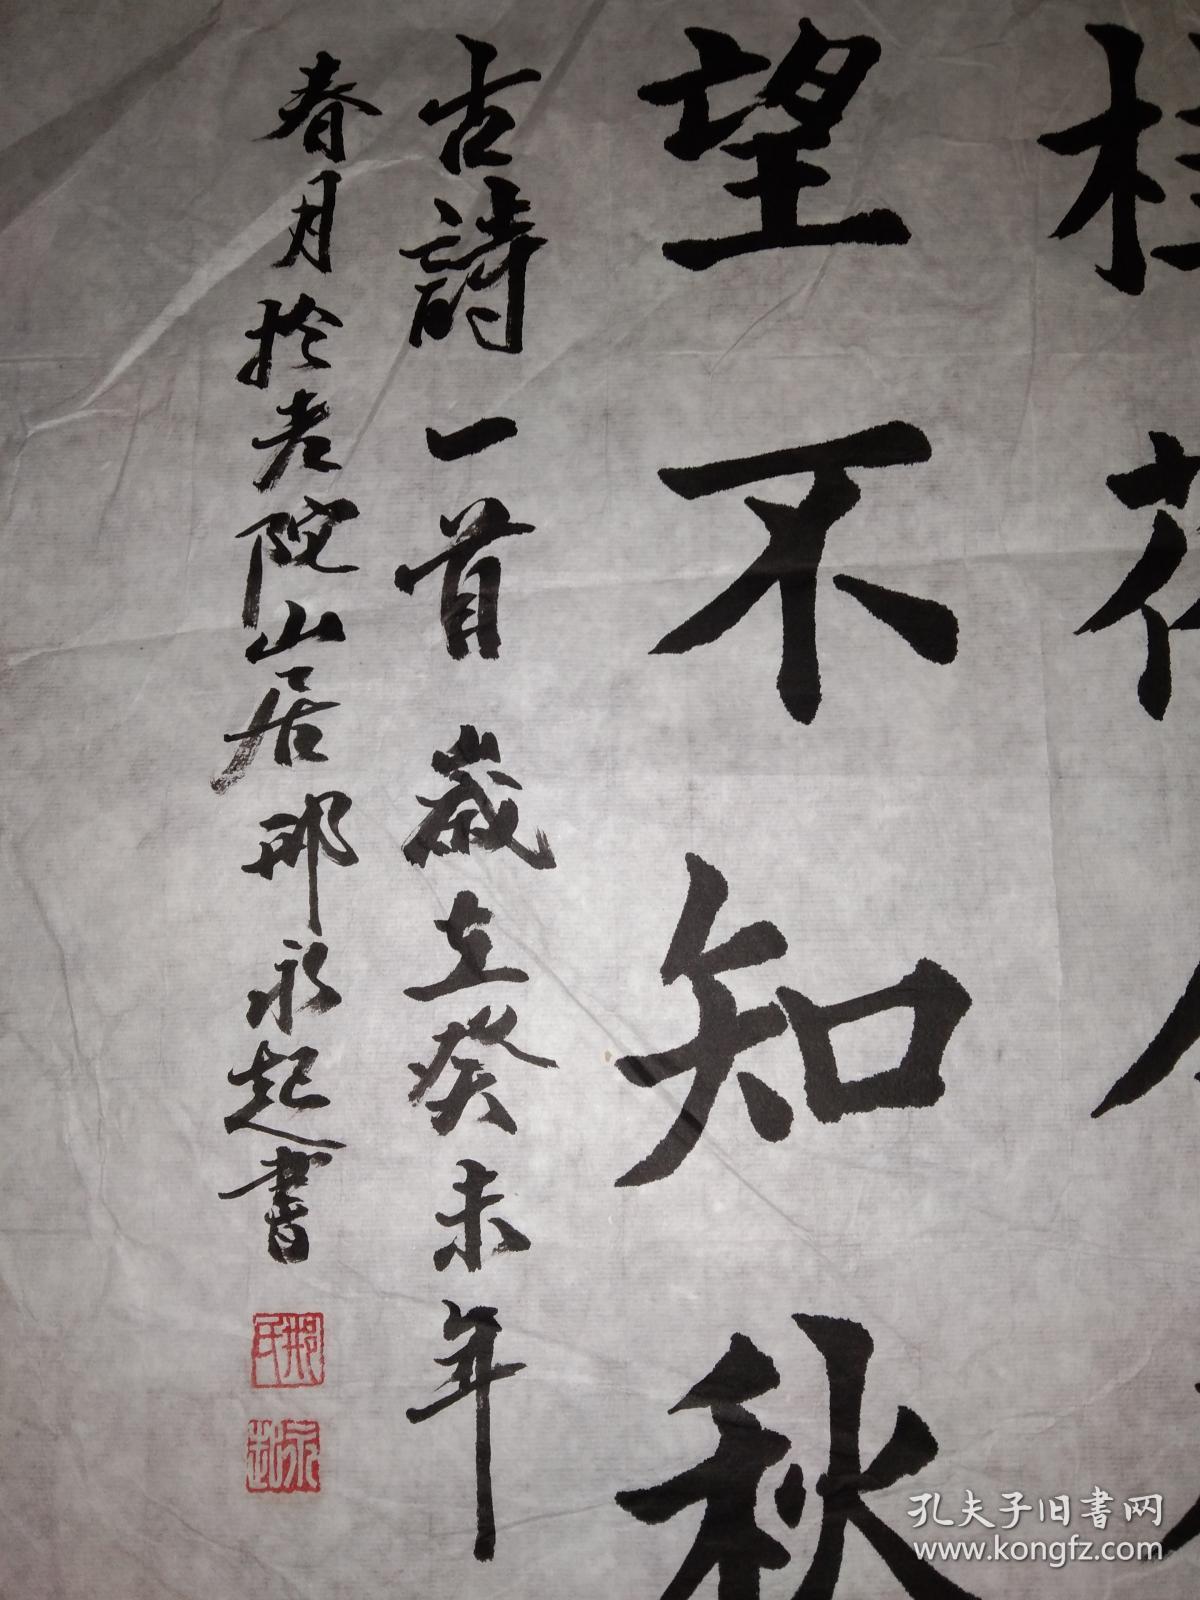 桂花今
望不知秋
古詩一首歲在癸未年
春月於老院山居邢永起書
邢氏
永起
孔夫子旧書网
www.kongfz.com